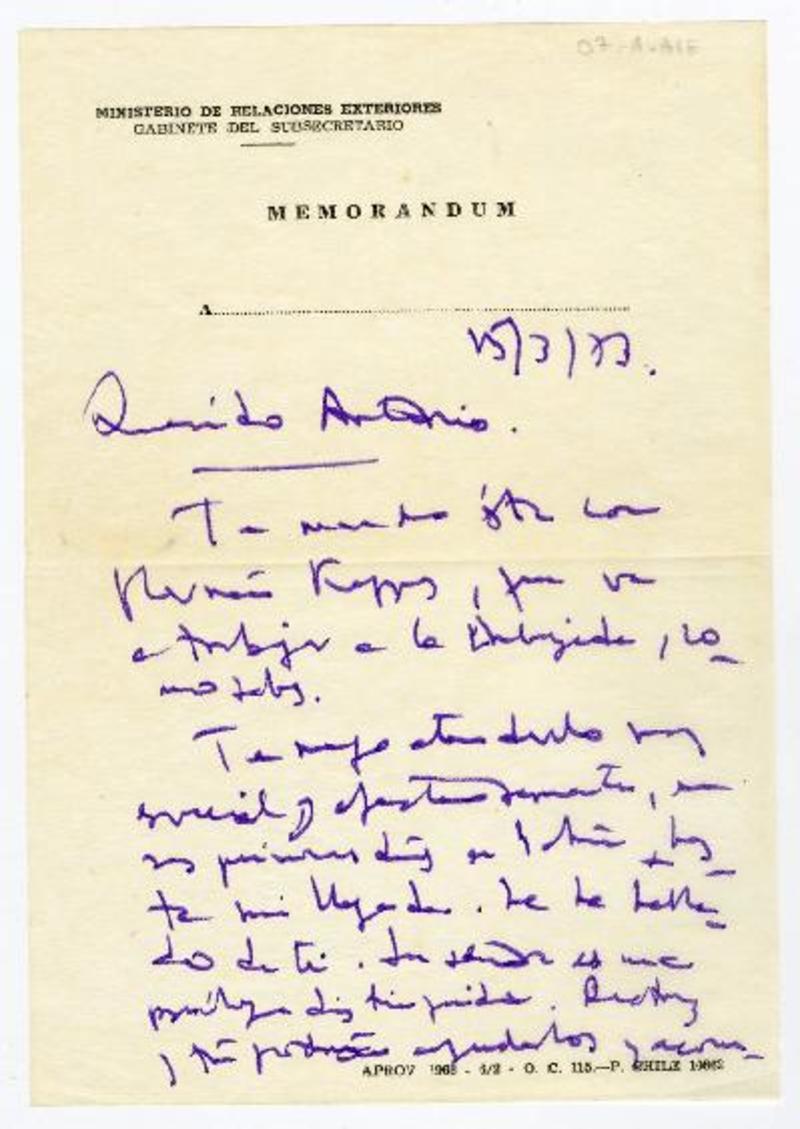 07-AVALE
MINISTERIO DE RELACIONES EXTERIORES
GABINETE DEL SUBSECRETARIO
MEMORANDUM
A
15/3/73.
Querido Antonio.
Te mando ésta con
Hernán, que va
a trabajar a la Embajada, co-
mo sabes.
Te ruego atenderlo muy
especial y afectuosamente, en
sus primeros días en, has-
ta mi llegada. Le he habla-
do de ti. Su señora es una
psicóloga distinguida.
y tú podrán ayudarlos y acons-
APROV 1968 - 4/2 - O. C. 115.—P. CHILE